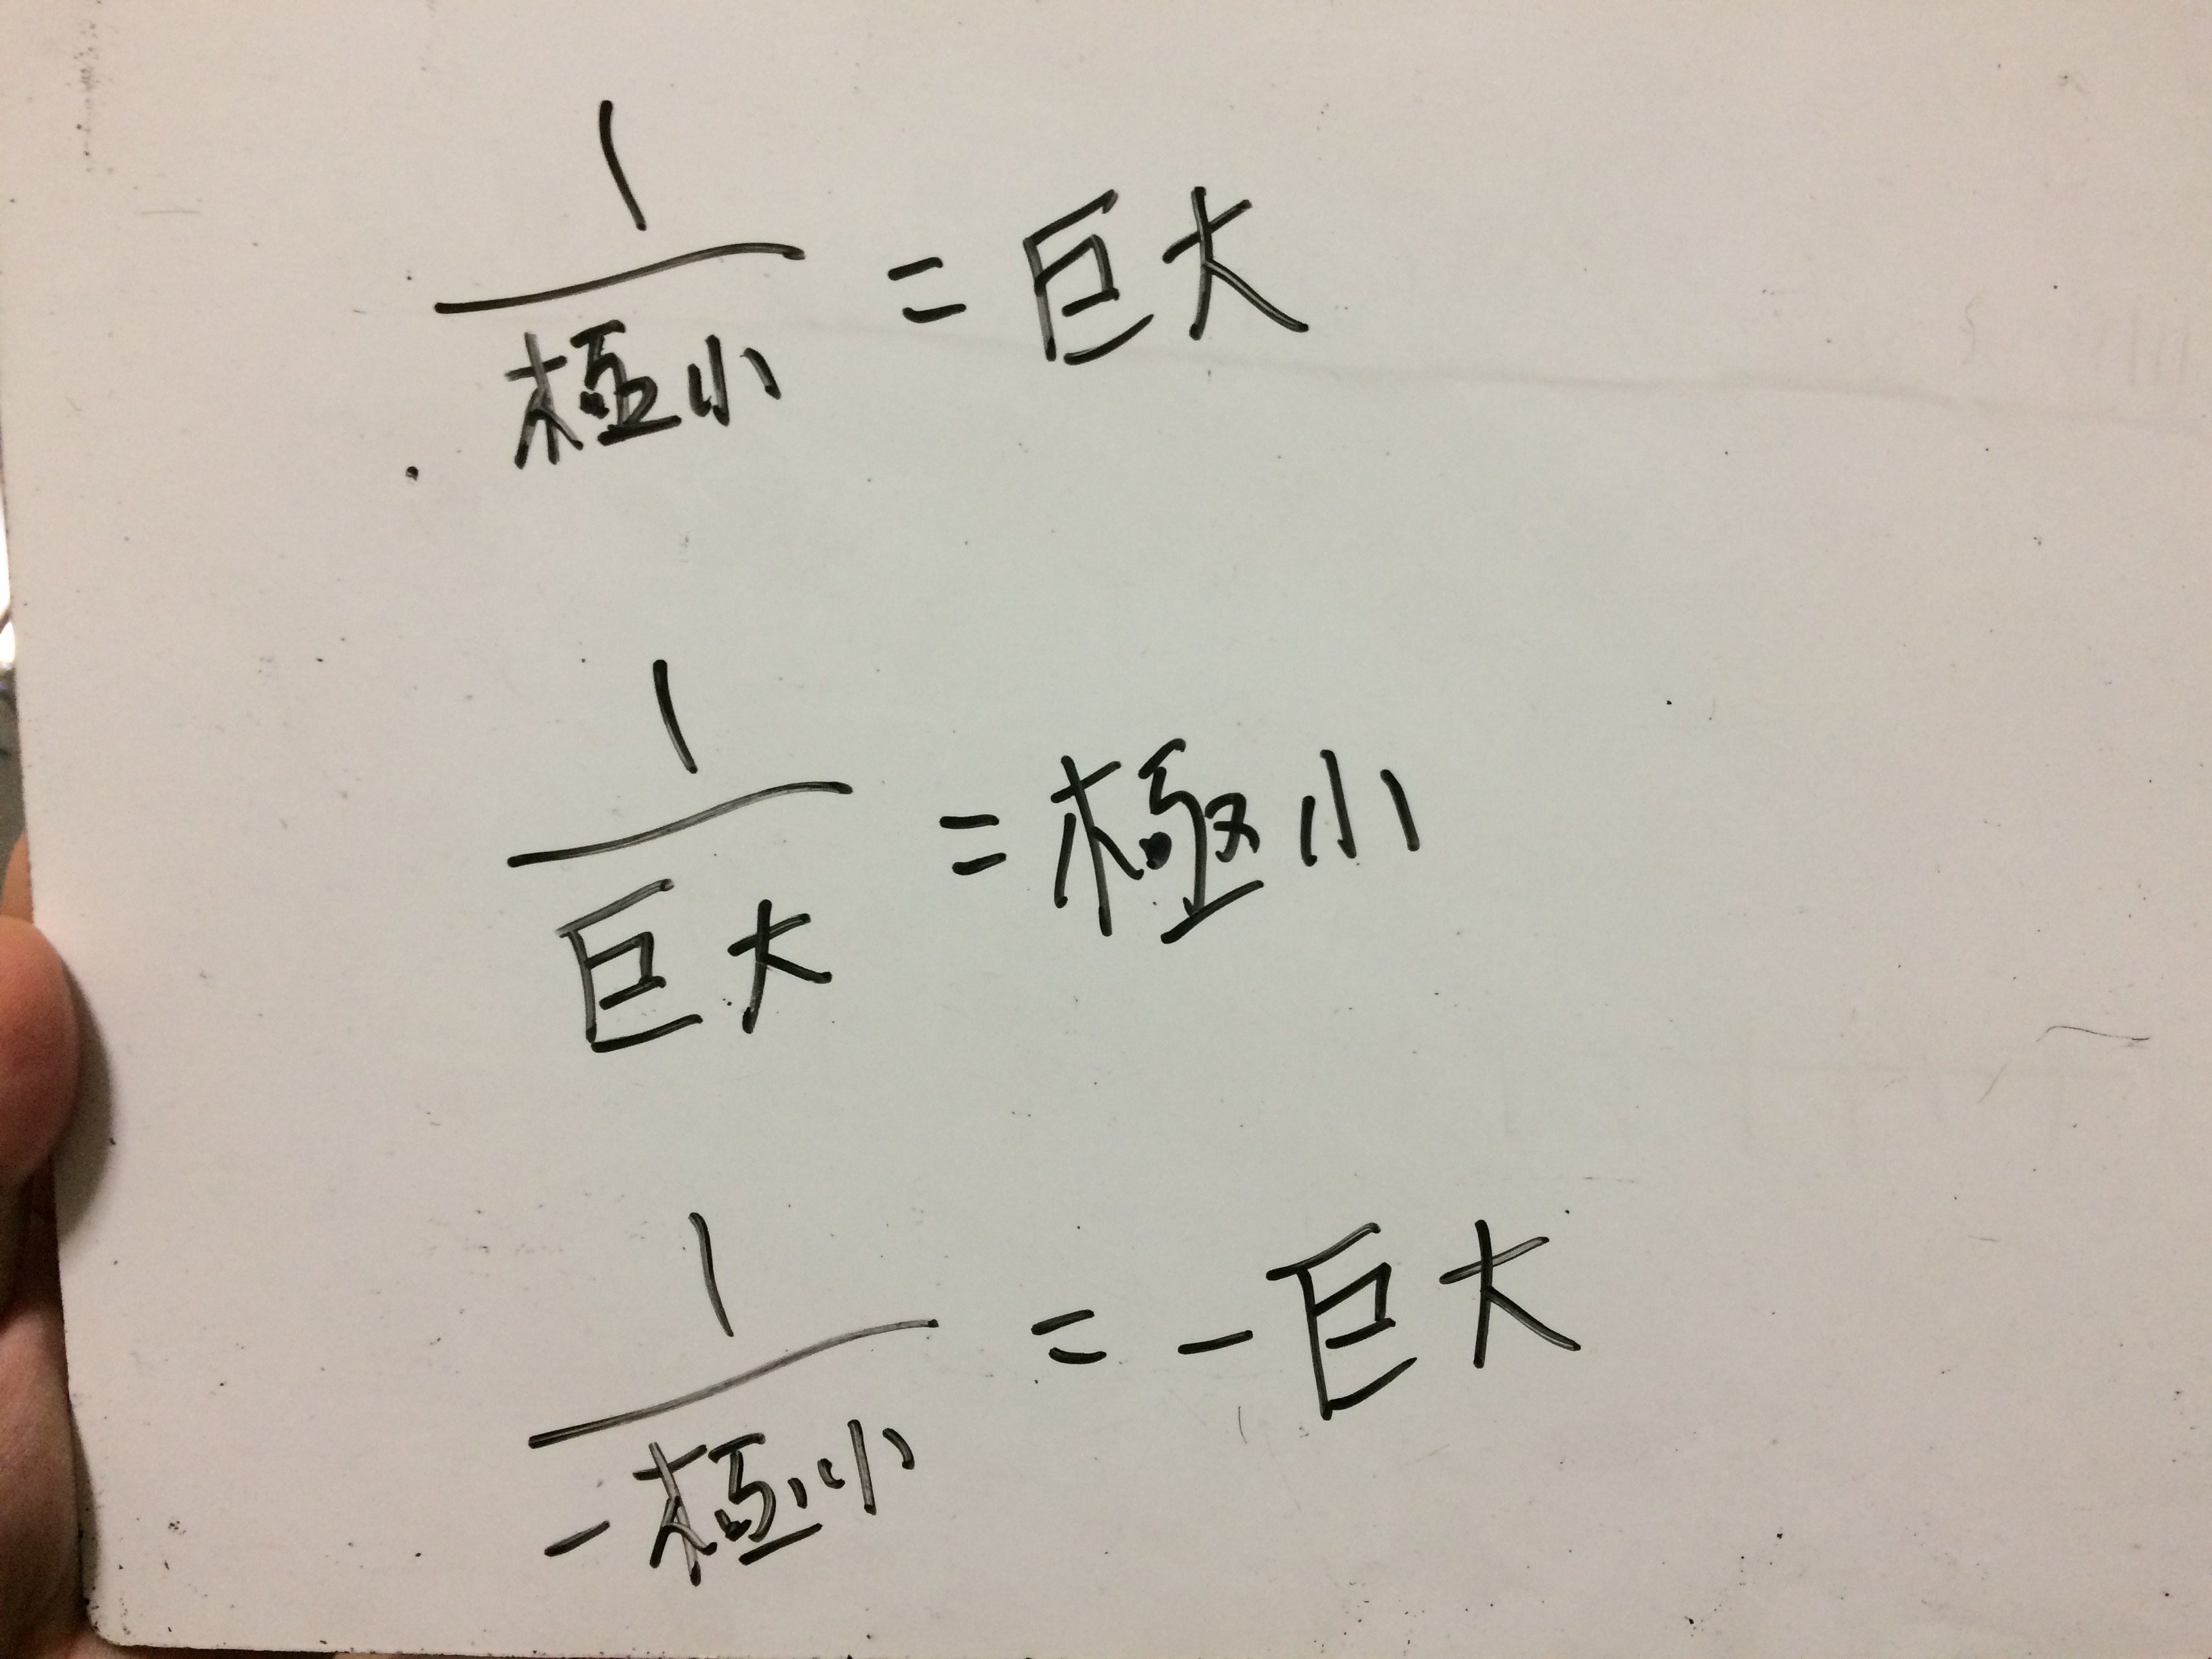 1
極小 = 巨大
1
巨大 = 極小
1
-極小 = -巨大